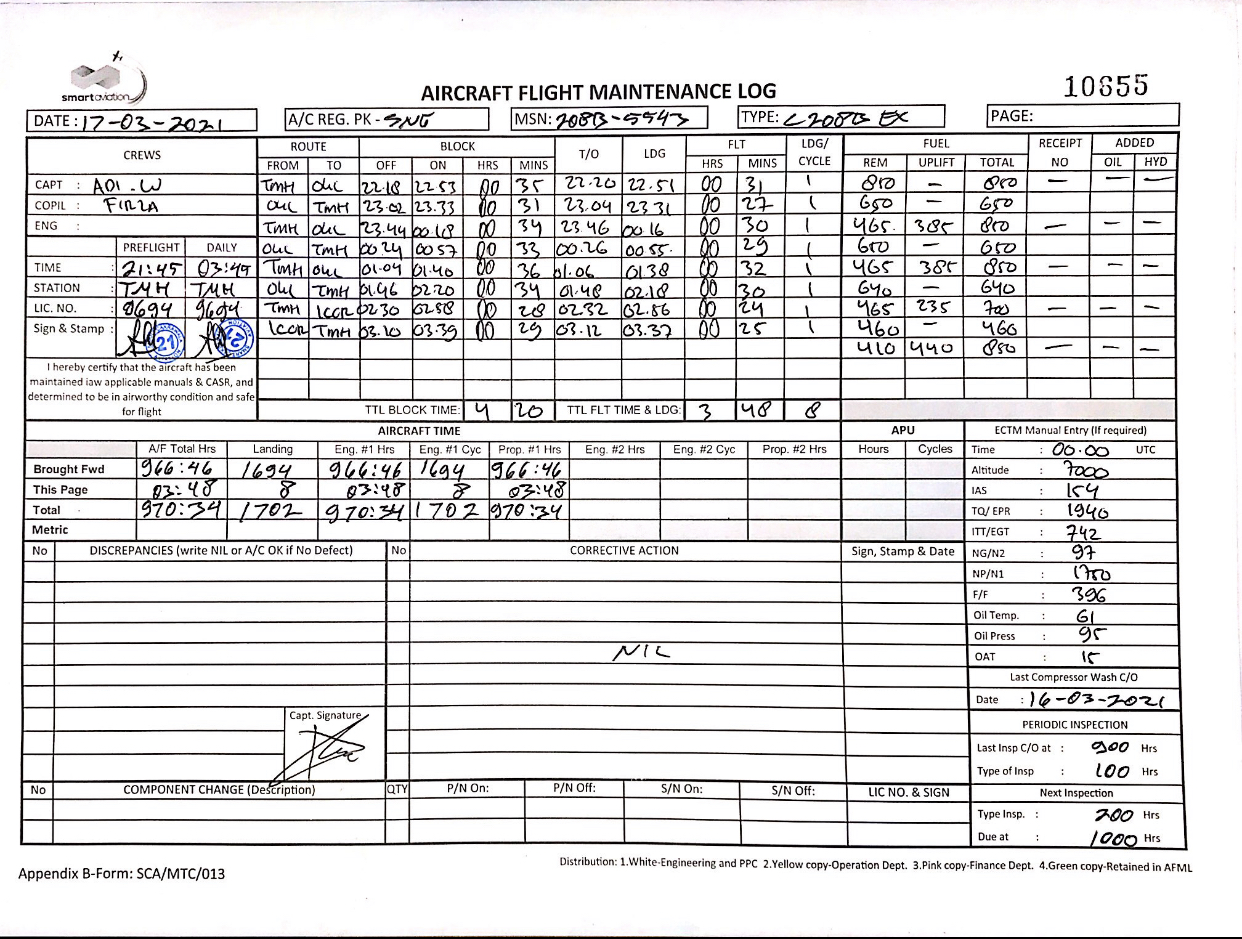 smartaviation
AIRCRAFT FLIGHT MAINTENANCE LOG
10655
DATE : 17-03-2021 A/C REG. PK - SNG MSN: 208B-5543 TYPE: C208B EX PAGE:
CREWS ROUTE BLOCK T/O LDG FLT LDG/ CYCLE FUEL RECEIPT NO ADDED
FROM TO OFF ON HRS MINS HRS MINS REM UPLIFT TOTAL OIL HYD
CAPT : ADI.W TMH OKL 22.18 22.53 00 35 22.20 22.51 00 31 1 850 — 850 — — —
COPIL : FIRZA OKL TMH 23.02 23.33 00 31 23.04 23 31 00 27 1 650 — 650
ENG : TMH OKL 23.44 00.18 00 34 23.46 00 16 00 30 1 465. 385 850 — — —
PREFLIGHT DAILY OKL TMH 00.24 00 57 00 33 00.26 00 55. 00 29 1 650 — 650
TIME : 21:45 03:45 TMH OKL 01.04 01.40 00 36 01.06 01.38 00 32 1 465 385 850 — — —
STATION : TMH TMH OKL TMH 01.46 02.20 00 34 01.48 02.18 00 30 1 640 — 640
LIC. NO. : 9694 9694 TMH 02.30 02.58 00 28 02.32 02.56 00 24 1 465 235 700 — — —
Sign & Stamp : 21 21 TMH 03.10 03.39 00 29 03.12 03.37 00 25 1 460 — 460
410 440 850 — — —
I hereby certify that the aircraft has been
maintained iaw applicable manuals & CASR, and
determined to be in airworthy condition and safe
for flight
TTL BLOCK TIME: 4 20 TTL FLT TIME & LDG: 3 48 8
AIRCRAFT TIME APU ECTM Manual Entry (If required)
A/F Total Hrs Landing Eng. #1 Hrs Eng. #1 Cyc Prop. #1 Hrs Eng. #2 Hrs Eng. #2 Cyc Prop. #2 Hrs Hours Cycles Time : 00.00 UTC
Brought Fwd 966:46 1694 966:46 1694 966:46 Altitude : 7000
This Page 03:48 8 03:48 8 03:48 IAS : 154
Total 970:34 1702 970:34 1702 970:34 TQ/ EPR : 1940
Metric ITT/EGT : 742
No DISCREPANCIES (write NIL or A/C OK if No Defect) No CORRECTIVE ACTION Sign, Stamp & Date NG/N2 : 97
NP/N1 : 1750
F/F : 396
Oil Temp. : 61
Oil Press : 95
NIL OAT : 15
Last Compressor Wash C/O
Date : 16-03-2021
Capt. Signature PERIODIC INSPECTION
Last Insp C/O at : 900 Hrs
Type of Insp : 100 Hrs
No COMPONENT CHANGE (Description) QTY P/N On: P/N Off: S/N On: S/N Off: LIC NO. & SIGN Next Inspection
Type Insp. : 200 Hrs
Due at : 1000 Hrs
Distribution: 1.White-Engineering and PPC 2.Yellow copy-Operation Dept. 3.Pink copy-Finance Dept. 4.Green copy-Retained in AFML
Appendix B-Form: SCA/MTC/013